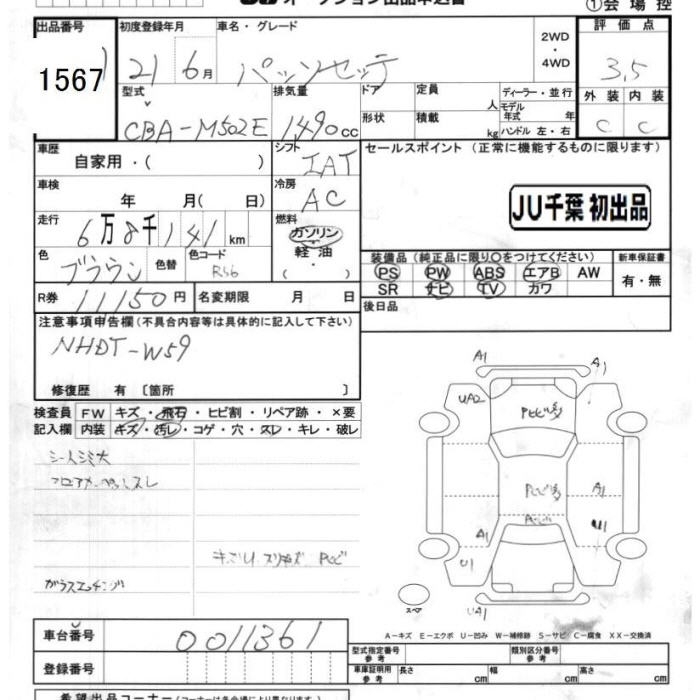 オークション出品申込書
①会場控
出品番号
初度登録年月
車名・グレード
2WD
・
4WD
評価点
1567
21 6月
パッソセッテ
3.5
型式
排気量
ドア
定員
人
ディーラー・並行
外装 内装
CBA-M502E
1490cc
形状
積載
kg
モデル年式 年
ハンドル 左・右
C C
車歴
自家用・( )
シフト
IAT
セールスポイント(正常に機能するものに限ります)
車検
年 月( 日)
冷房
AC
JU千葉 初出品
走行
6万8千141km
燃料
ガソリン
・
軽油
・
( )
色
ブラウン
色替
色コード
R56
装備品(純正品に限り〇をつけてください)
新車保証書
PS PW ABS エアB AW
有・無
SR ナビ TV カワ
R券
11150円
名変期限 月 日
後日品
注意事項申告欄(不具合内容等は具体的に記入して下さい)
NHDT-W59
修復歴 有 〔箇所 〕
検査員
記入欄
FW キズ・飛石・ヒビ割・リペア跡・×要
内装 キズ・汚レ・コゲ・穴・スレ・キレ・破レ
シートシミ大
フロアカーペットスレ
ガラスエッチング
A1
A1
UA2
A1
A1
U1
U1
スペア
UA1
A－キズ E－エクボ U－凹み W－補修跡 S－サビ C－腐食 XX－交換済
車台番号
0011361
登録番号
型式指定番号
参考
類別区分番号
参考
車庫証明用
参考
長さ cm
幅 cm
高さ cm
希望出品コーナー